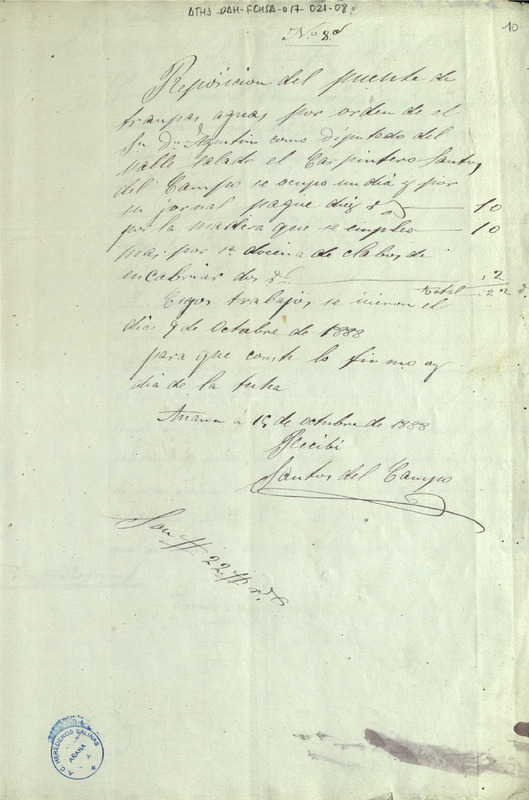 ATHA-DAH-ECHSA-017-021-08
10
Nº 8º
Reposicion del puente de
tranpas aguas por orden de el
Sr Dn Agustin como diputado del
valle salado el Carpintero Santos
del Campo se ocupo un dia y por
su jornal pague diez rs 10
por la madera que se empleo 10
mas por 1ª docena de clabos de
encabriar dos rs 2
total 22 rs
Cuyos trabajos se icieron el
dia 9 de Octubre de 1888
para que conste lo firmo oy
dia de la fecha
Anana á 15 de octubre de 1888
Recibi
Santos del Campo
Son # 22 # rs
A.C. HEREDEROS SALINAS
AÑANA